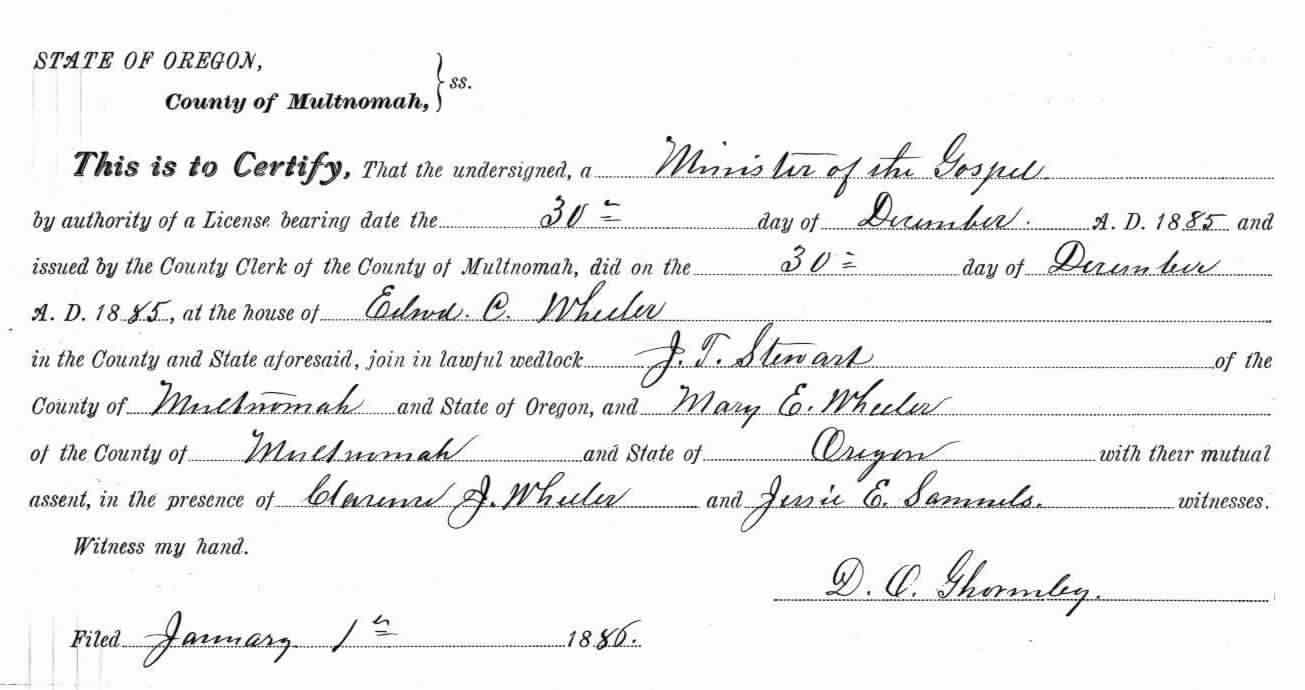 STATE OF OREGON,
County of Multnomah, } ss.
This is to Certify, That the undersigned, a Minister of the Gospel.
by authority of a License bearing date the 30th day of December. A. D. 1885 and
issued by the County Clerk of the County of Multnomah, did on the 30th day of December
A. D. 1885, at the house of Edwd. C. Wheeler
in the County and State aforesaid, join in lawful wedlock J. T. Stewart of the
County of Multnomah and State of Oregon, and Mary E. Wheeler
of the County of Multnomah and State of Oregon with their mutual
assent, in the presence of Clarence J. Wheeler and Jessie E. Samuels. witnesses.
Witness my hand.
D. O. Ghormley.
Filed January 1st 1886.